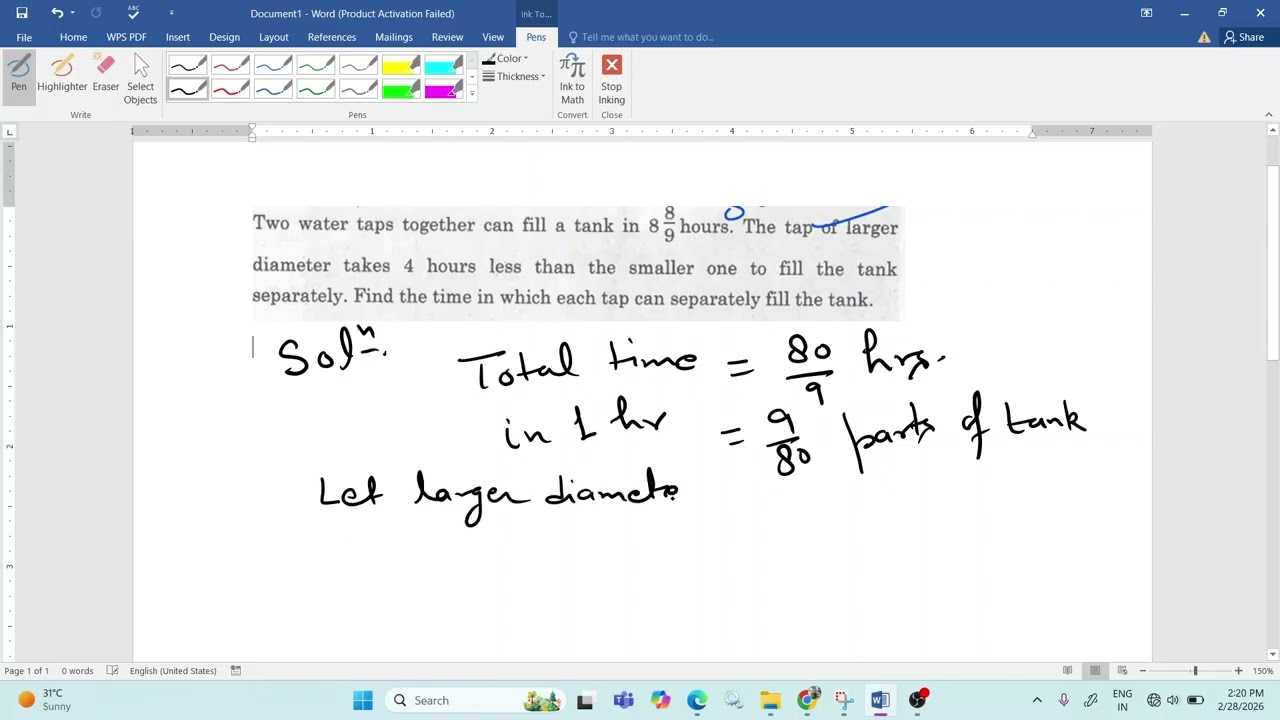 Document1 - Word (Product Activation Failed)
Ink To...
File Home WPS PDF Insert Design Layout References Mailings Review View Pens Tell me what you want to do... Share
Pen Highlighter Eraser Select Objects
Color
Thickness
Ink to Math
Stop Inking
Write Pens Convert Close
1 1 2 3 4 5 6 7
Two water taps together can fill a tank in 8 8/9 hours. The tap of larger
diameter takes 4 hours less than the smaller one to fill the tank
separately. Find the time in which each tap can separately fill the tank.
Solⁿ. Total time = 80/9 hrs.
in 1 hr = 9/80 parts of tank
Let larger diamete
1
2
3
Page 1 of 1 0 words English (United States) 150%
31°C
Sunny
Search
ENG
IN
2:20 PM
2/28/2026